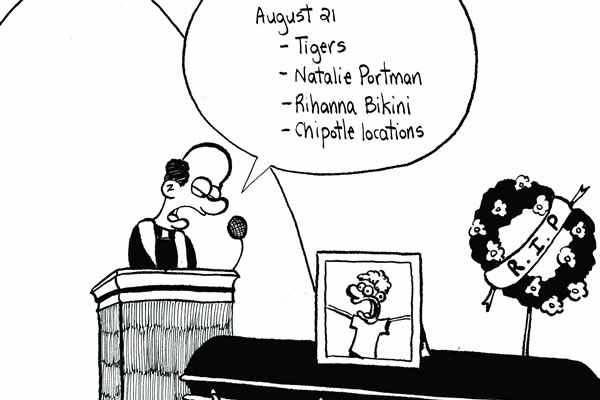 August 21
- Tigers
- Natalie Portman
- Rihanna Bikini
- Chipotle locations
R.I.P